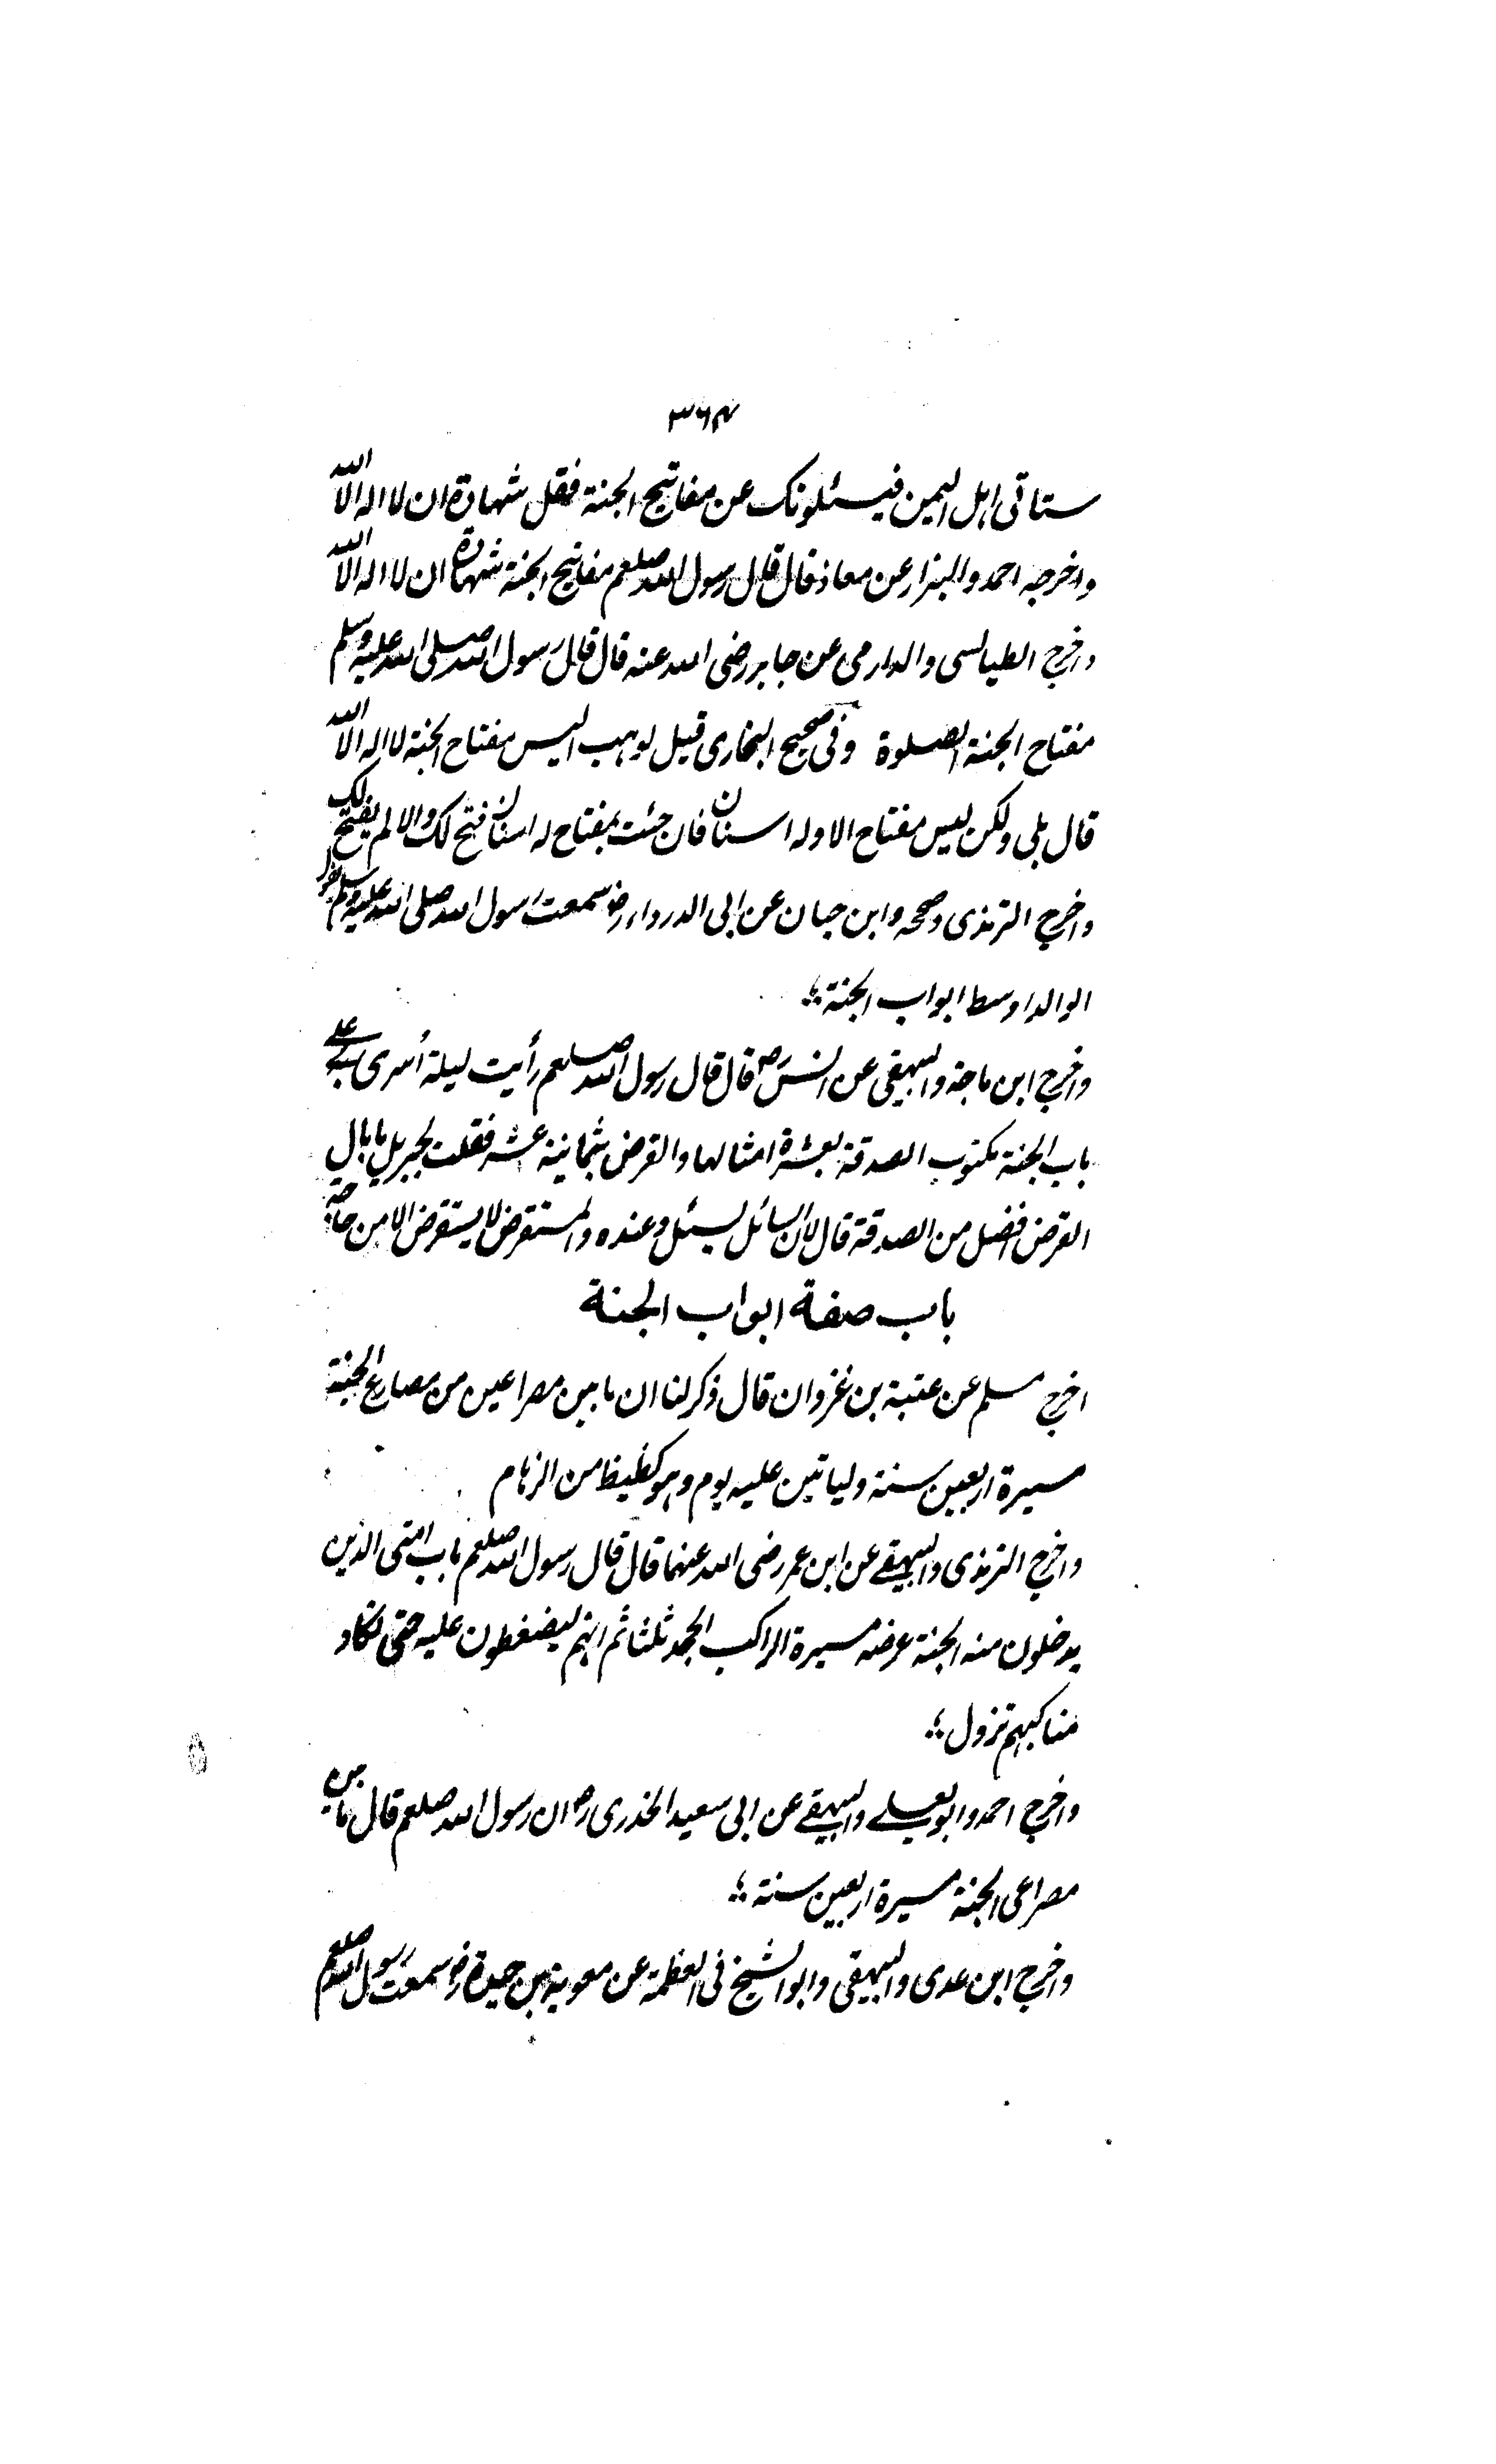 ٣٦٤
ستاتى اہل اليمن فيسئلونک عن مفاتيح الجنة فقل شهادة ان لا اله الا الله
واخرجه احمد والبزار عن معاذ قال قال رسول الله صلعم مفاتيح الجنة شهادة ان لا اله الا الله
واخرج الطيالسى والدارمى عن جابر رضى الله عنه قال قال رسول الله صلى الله عليه وسلم
مفتاح الجنة الصلوة وفى صحيح البخارى قيل لوہب اليس مفتاح الجنة لا اله الا الله
قال بلى ولكن ليس مفتاح الا وله اسنان فان جئت بمفتاح له اسنان فتح لک والا لم يفتح لک
واخرج الترمذى وصححه وابن حبان عن ابى الدرداء رض سمعت رسول الله صلى الله عليه وسلم يقول
الوالد اوسط ابواب الجنة
واخرج ابن ماجة والبيہقى عن انس رض قال قال رسول الله صلعم رأيت ليلة أسرى بى على
باب الجنة مكتوب الصدقة بعشرة امثالها والقرض بثمانية عشر فقلت لجبريل يا بال
القرض افضل من الصدقة قال لان السائل يسئل وعنده والمستقرض لا يستقرض الا من حاجة
باب صفة ابواب الجنة
اخرج مسلم عن عتبة بن غزوان قال ذكر لنا ان ما بين مصراعين من مصاريع الجنة
مسيرة اربعين سنة ولياتين عليه يوم وہو كظيظ من الزحام
واخرج الترمذى والبيہقے عن ابن عمر رضى الله عنهما قال قال رسول الله صلعم باب امتى الذين
يدخلون منه الجنة عرضه مسيرة الراكب المجد ثلثا ثم انہم ليضغطون عليه حتى تكاد
مناكبہم تزول
واخرج احمد وابو يعلے والبيہقے عن ابى سعيد الخدرى رض ان رسول الله صلعم قال ما بين
مصراعى الجنة مسيرة اربعين سنة
واخرج ابن عدى والبيہقى وابو الشيخ فى العظمة عن معوية بن حيدة رض سمعت رسول الله صلعم